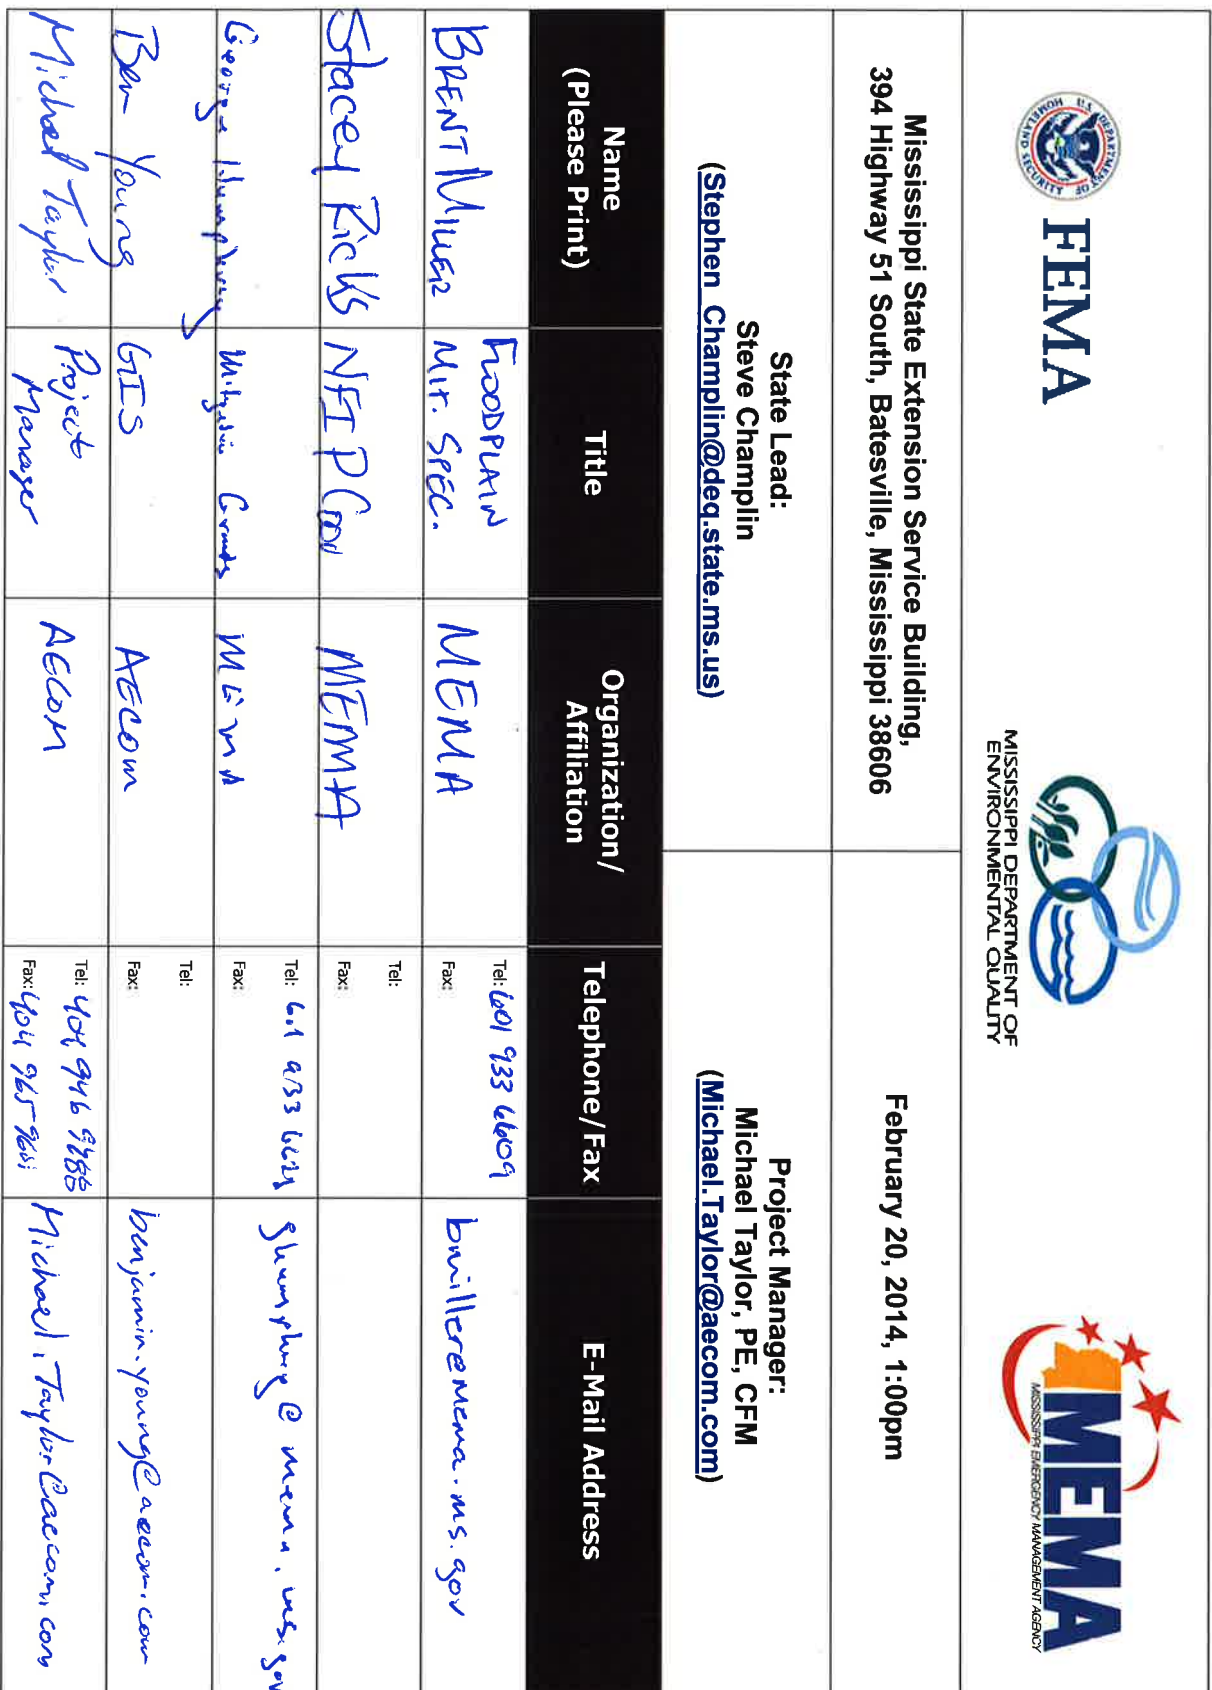 U.S. DEPARTMENT OF HOMELAND SECURITY
FEMA
MISSISSIPPI DEPARTMENT OF
ENVIRONMENTAL QUALITY
MEMA
MISSISSIPPI EMERGENCY MANAGEMENT AGENCY
Mississippi State Extension Service Building,
394 Highway 51 South, Batesville, Mississippi 38606
February 20, 2014, 1:00pm
State Lead:
Steve Champlin
(Stephen_Champlin@deq.state.ms.us)
Project Manager:
Michael Taylor, PE, CFM
(Michael.Taylor@aecom.com)
Name
(Please Print)
Title
Organization/
Affiliation
Telephone/Fax
E-Mail Address
BRENT MILLER
FLOODPLAIN
MIT. SPEC.
MEMA
Tel: 601 933 6609
Fax:
bmiller@mema.ms.gov
Stacey Ricks
NFIP Coor
MEMA
Tel:
Fax:
George Humphrey
Mitigation Grants
MEMA
Tel:
Fax:
ghumphrey@mema.ms.gov
Ben Young
GIS
AECOM
Tel:
Fax:
benjamin.young@aecom.com
Michael Taylor
Project
Manager
AECOM
Tel: 404 946 9488
Fax: 404 965 9601
Michael.Taylor@aecom.com